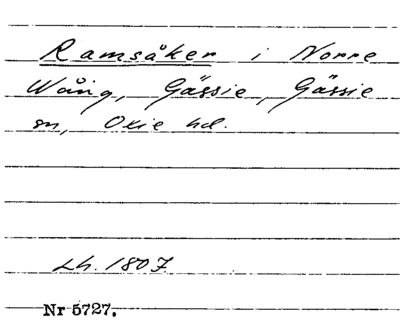 Ramsåker i Norre
Wång, Gässie, Gässie
sn, Oxie hd.
Lh. 1807
Nr 5727.